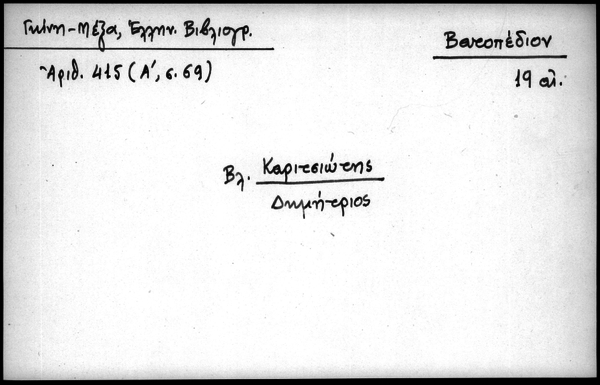 Γκίνη-Μέξα, Ἑλλην. Βιβλιογρ.
Ἀριθ. 415 (Α', σ. 69)
Βατοπέδιον
19 αἰ.
Βλ. Καριτσιώτης
Δημήτριος